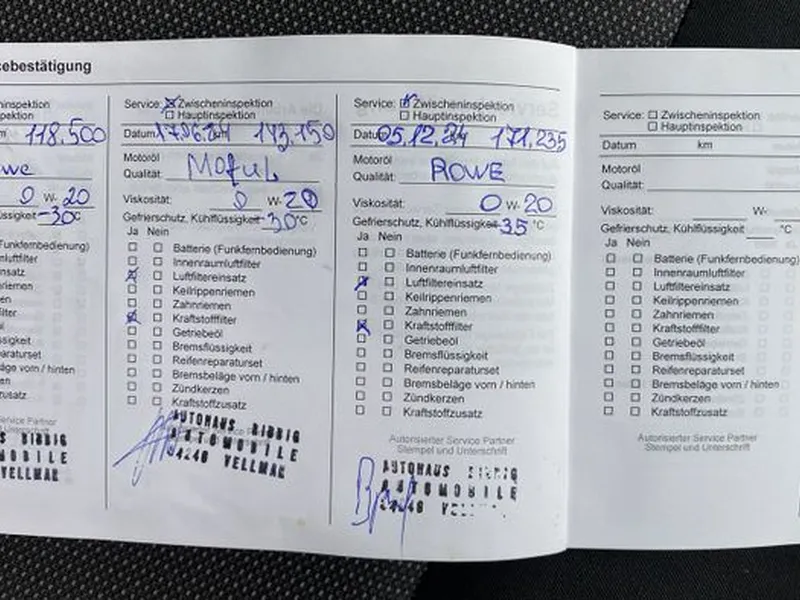 cebestätigung
ninspektion
pektion
118.500
we
0 W- 20
üssigkeit -30°C
e (Funkfernbedienung)
Service: Zwischeninspektion
Hauptinspektion
Datum 17.06.24 143.150
Motoröl
Qualität: Motul
Viskosität: 0 W- 20
Gefrierschutz, Kühlflüssigkeit -30°C
Ja Nein
Batterie (Funkfernbedienung)
Innenraumluftfilter
Luftfiltereinsatz
Keilrippenriemen
Zahnriemen
Kraftstofffilter
Getriebeöl
Bremsflüssigkeit
Reifenreparaturset
Bremsbeläge vorn / hinten
Zündkerzen
Kraftstoffzusatz
AUTOHAUS BIBBIG
AUTOMOBILE
34246 VELLMAR
Service: Zwischeninspektion
Hauptinspektion
Datum 05.12.24 171.235
Motoröl
Qualität: ROWE
Viskosität: 0 W- 20
Gefrierschutz, Kühlflüssigkeit -35 °C
Ja Nein
Batterie (Funkfernbedienung)
Innenraumluftfilter
Luftfiltereinsatz
Keilrippenriemen
Zahnriemen
Kraftstofffilter
Getriebeöl
Bremsflüssigkeit
Reifenreparaturset
Bremsbeläge vorn / hinten
Zündkerzen
Kraftstoffzusatz
Autorisierter Service Partner
Stempel und Unterschrift
AUTOHAUS BIBBIG
AUTOMOBILE
34246
Service: Zwischeninspektion
Hauptinspektion
Datum km
Motoröl
Qualität:
Viskosität: W-
Gefrierschutz, Kühlflüssigkeit °C
Ja Nein
Batterie (Funkfernbedienung)
Innenraumluftfilter
Luftfiltereinsatz
Keilrippenriemen
Zahnriemen
Kraftstofffilter
Getriebeöl
Bremsflüssigkeit
Reifenreparaturset
Bremsbeläge vorn / hinten
Zündkerzen
Kraftstoffzusatz
Autorisierter Service Partner
Stempel und Unterschrift